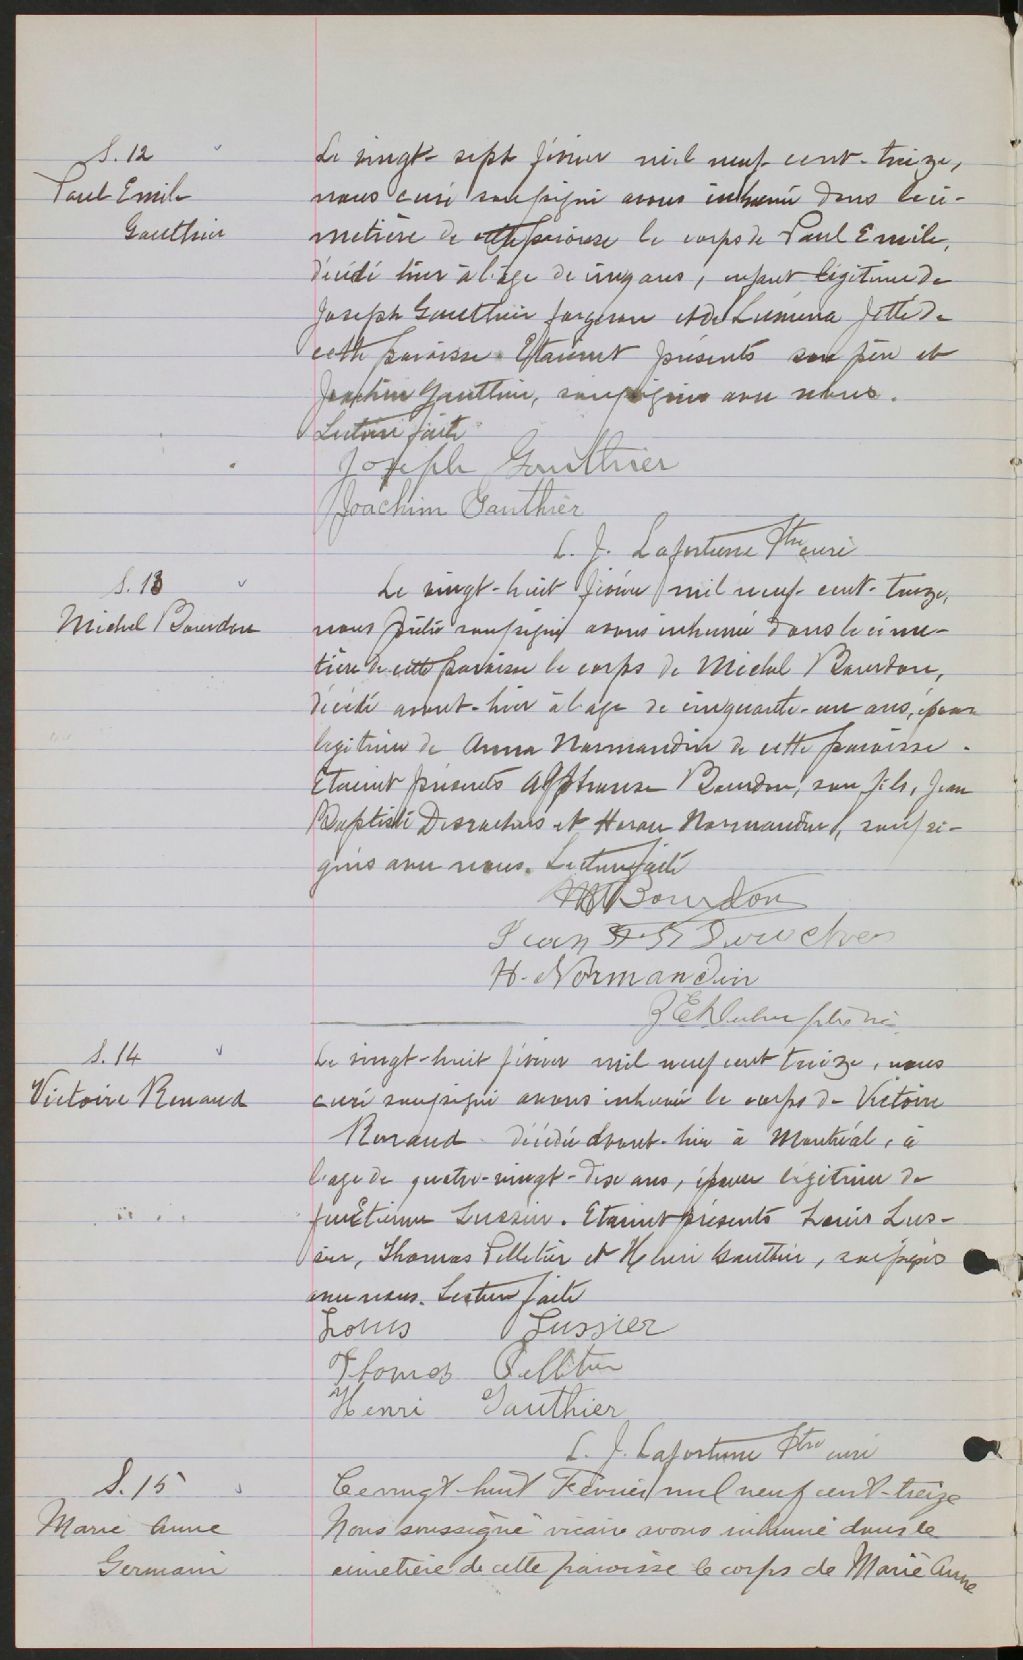 S. 12
Paul Emile
Gauthier
Le vingt-sept février mil neuf cent-treize,
nous curé soussigné avons inhumé dans le ci-
metière de cette paroisse le corps de Paul Emile,
décédé hier à l'âge de cinq ans, enfant légitime de
Joseph Gauthier forgeron et de Lumina Jetté de
cette paroisse. Etaient présents son père et
Joachim Gauthier, soussignés avec nous.
Lecture faite
Joseph Gauthier
Joachim Gauthier
L. J. Lafortune Ptre curé
S. 13
Michel Bourdon
Le vingt-huit février mil neuf cent-treize,
nous prêtre soussigné avons inhumé dans le cime-
tière de cette paroisse le corps de Michel Bourdon,
décédé avant-hier à l'age de cinquante-un ans, époux
légitime de Anna Normandin de cette paroisse.
Etaient présents Alphonse Bourdon, son fils, Jean
Baptiste Desrochers et Normandin, soussi-
gnés avec nous. Lecture faite
Bourdon
Jean Bte
H. Normandin
S. 14
Victoire Renaud
Le vingt-huit février mil neuf cent treize, nous
curé soussigné avons inhumé le corps de Victoire
Renaud décédée avant-hier à Montréal, à
l'age de quatre-vingt-dix ans, épouse légitime de
feu Etienne Lussier. Etaient présents Louis Lus-
sier, Thomas Pelletier et Henri Gauthier, soussignés
avec nous. Lecture faite
Louis Lussier
Thomas Pelletier
Henri Gauthier
L. J. Lafortune Ptre curé
S. 15
Marie Anne
Germain
Le vingt-huit Février mil neuf cent-treize
Nous soussigné vicaire avons inhumé dans le
cimetière de cette paroisse le corps de Marie Anne